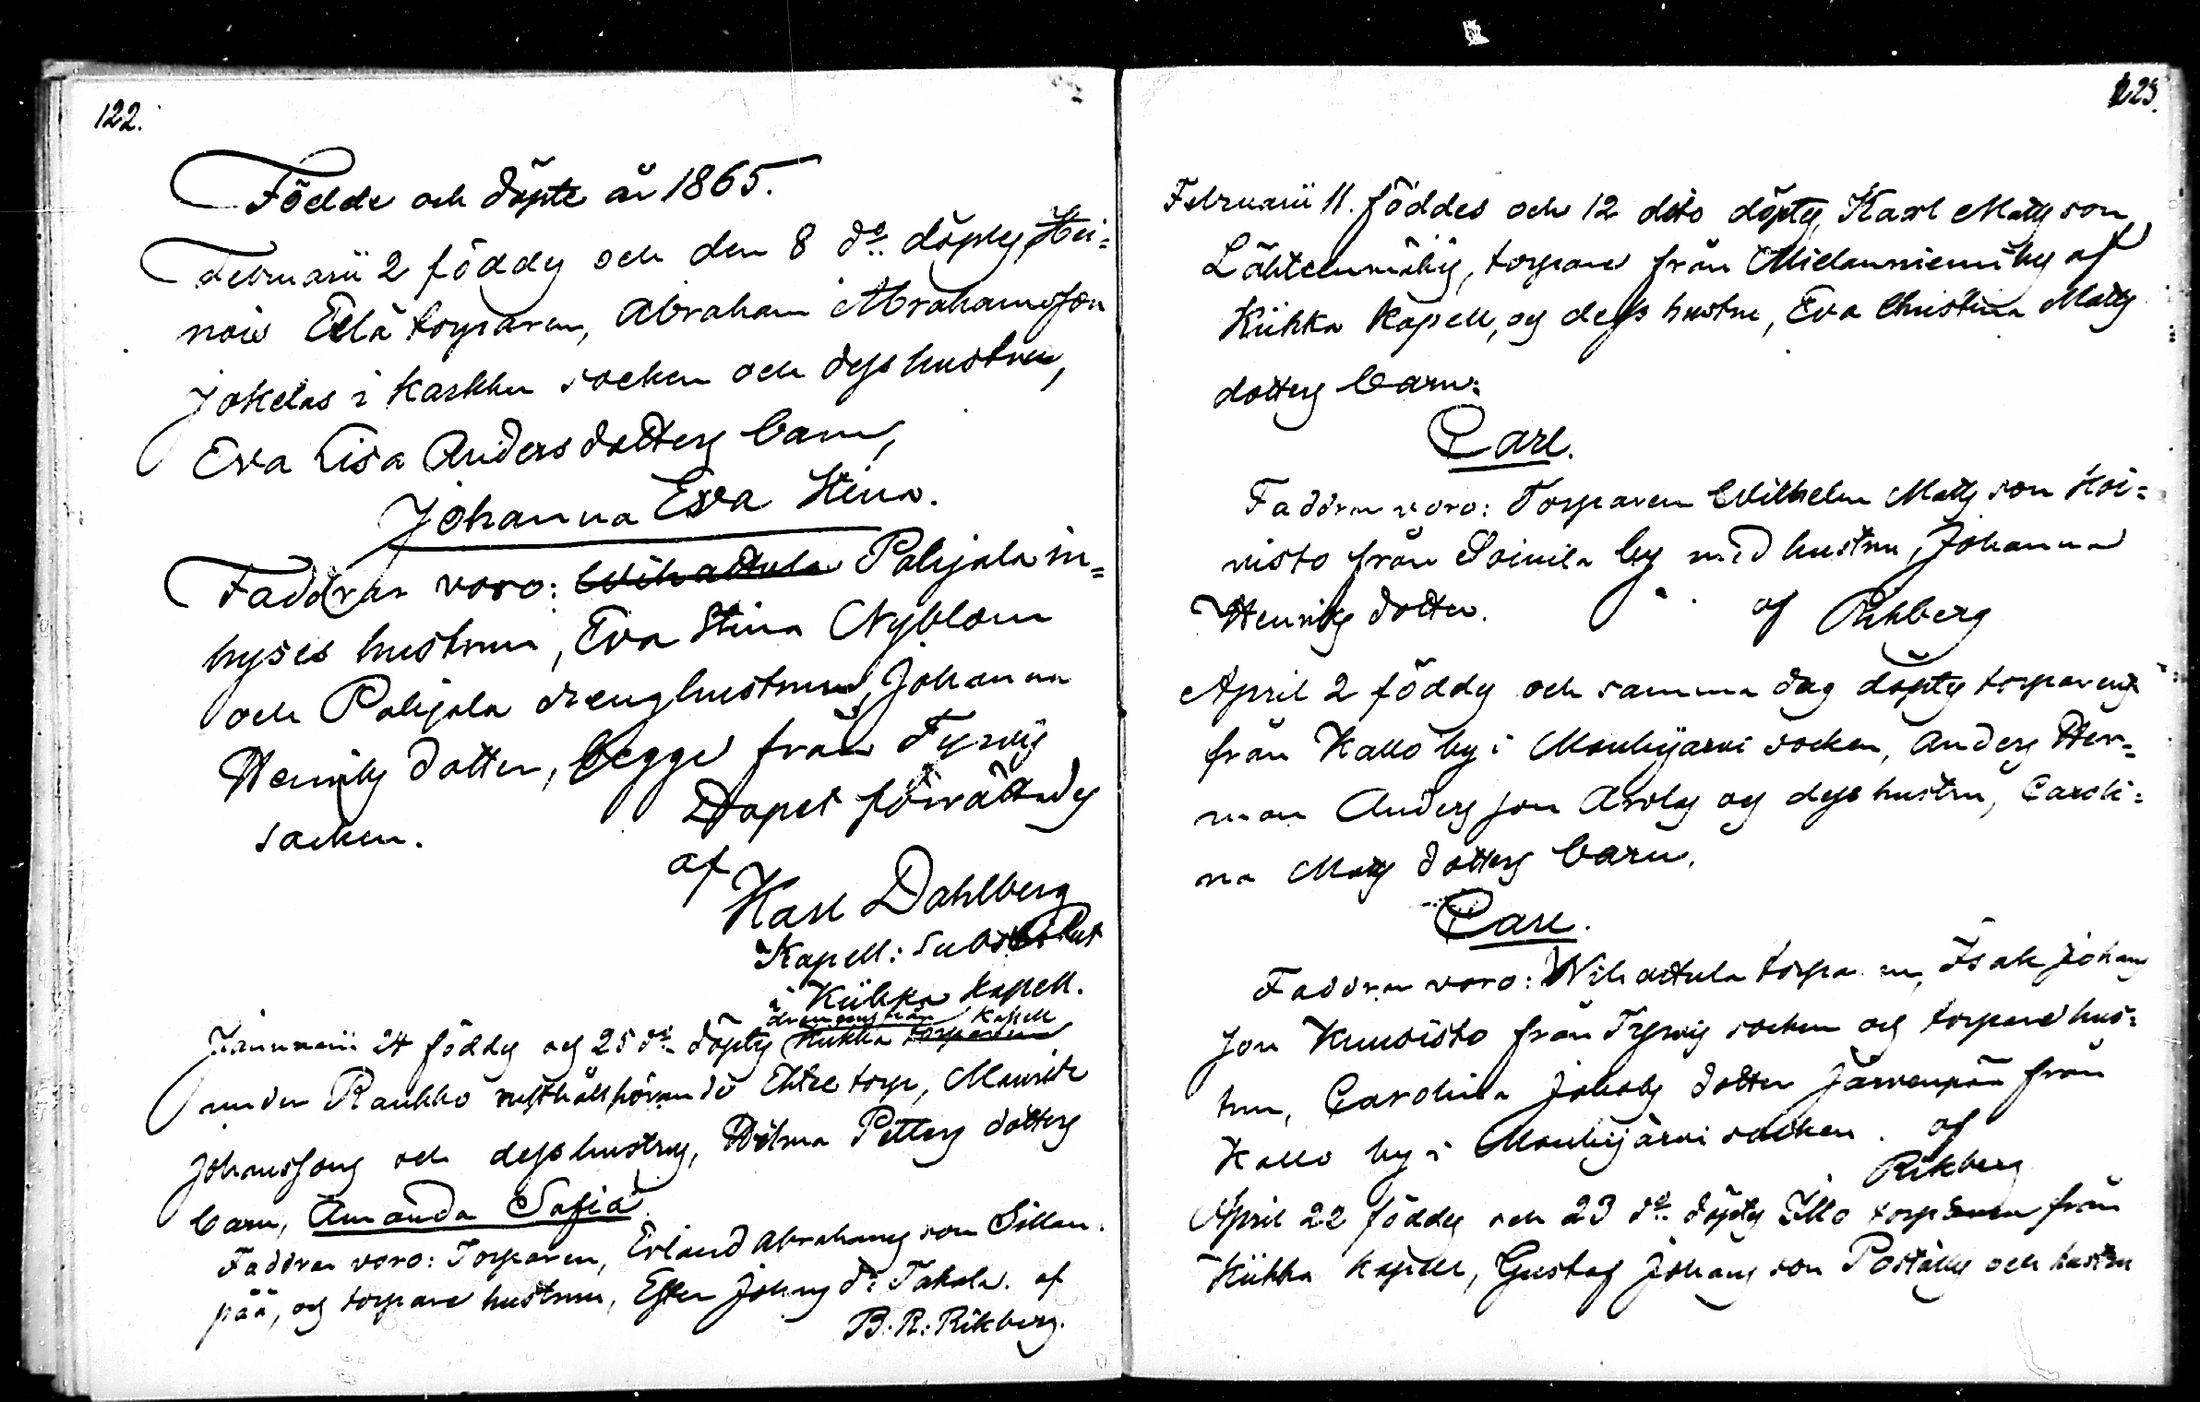 122.
Födde och döpte år 1865.
Februarii 2 föddes och den 8 do döptes Hei=
nois Eelä torparen, Abraham Abrahamsson
Jokelas i Karkku socken och dess hustrus,
Eva Lisa Andersdotters barn,
Johanna Eva Stina.
Faddrar voro: Pohjala in=
hyses hustrun, Eva Stina Nyblom
och Pohjala drenghustrun, Johanna
Henriks dotter, begge från Tyrvis
socken. Dopet förrättades
af
Karl Dahlberg
Kapell: Substitut
i Kiikka kapell.
drengens från Kapell
Januarii 24 föddes og 25 do döptes Kiikka torparens
under Raukko rusthåll hörande torp, Maurits
Johanssons och dess hustrus, Wilma Petters dotters
barn, Amanda Sofia.
Faddrar voro: Torparen, Erland Abrahams son Sillan=
pää, og torpare hustrun, Ester Johans dr Takala. af
B. R: Rikberg.
123.
Februarii 11. föddes och 12 dito döptes, Karl Matts son
Lähteenmäkis, torpare från by af
Kiikka Kapell, og dess hustru, Eva Christina Matts
dotters barn:
Carl.
Faddrar voro: Torparen Wilhelm Matts son Koi=
visto från Soinila by med hustru, Johanna
Henriks dotter. af Rikberg
April 2 föddes och samma dag döptes torparens
från Kallo by i Mouhijärvi socken, Anders Her=
man Anders son Arolas og dess hustru, Caroli=
na Matts dotters barn.
Carl.
Faddrar voro: Wihattula torparen, Isak Johans
son Kuusisto från Tyrvis socken og torpare hus=
trun, Carolina Jakobs dotter Järvenpää från
Kallo by i Mouhijärvi socken. af
Rikberg
April 22 föddes och 23 do döptes Illo torparen från
Kiikka kapell, Gustaf Johans son och hustru